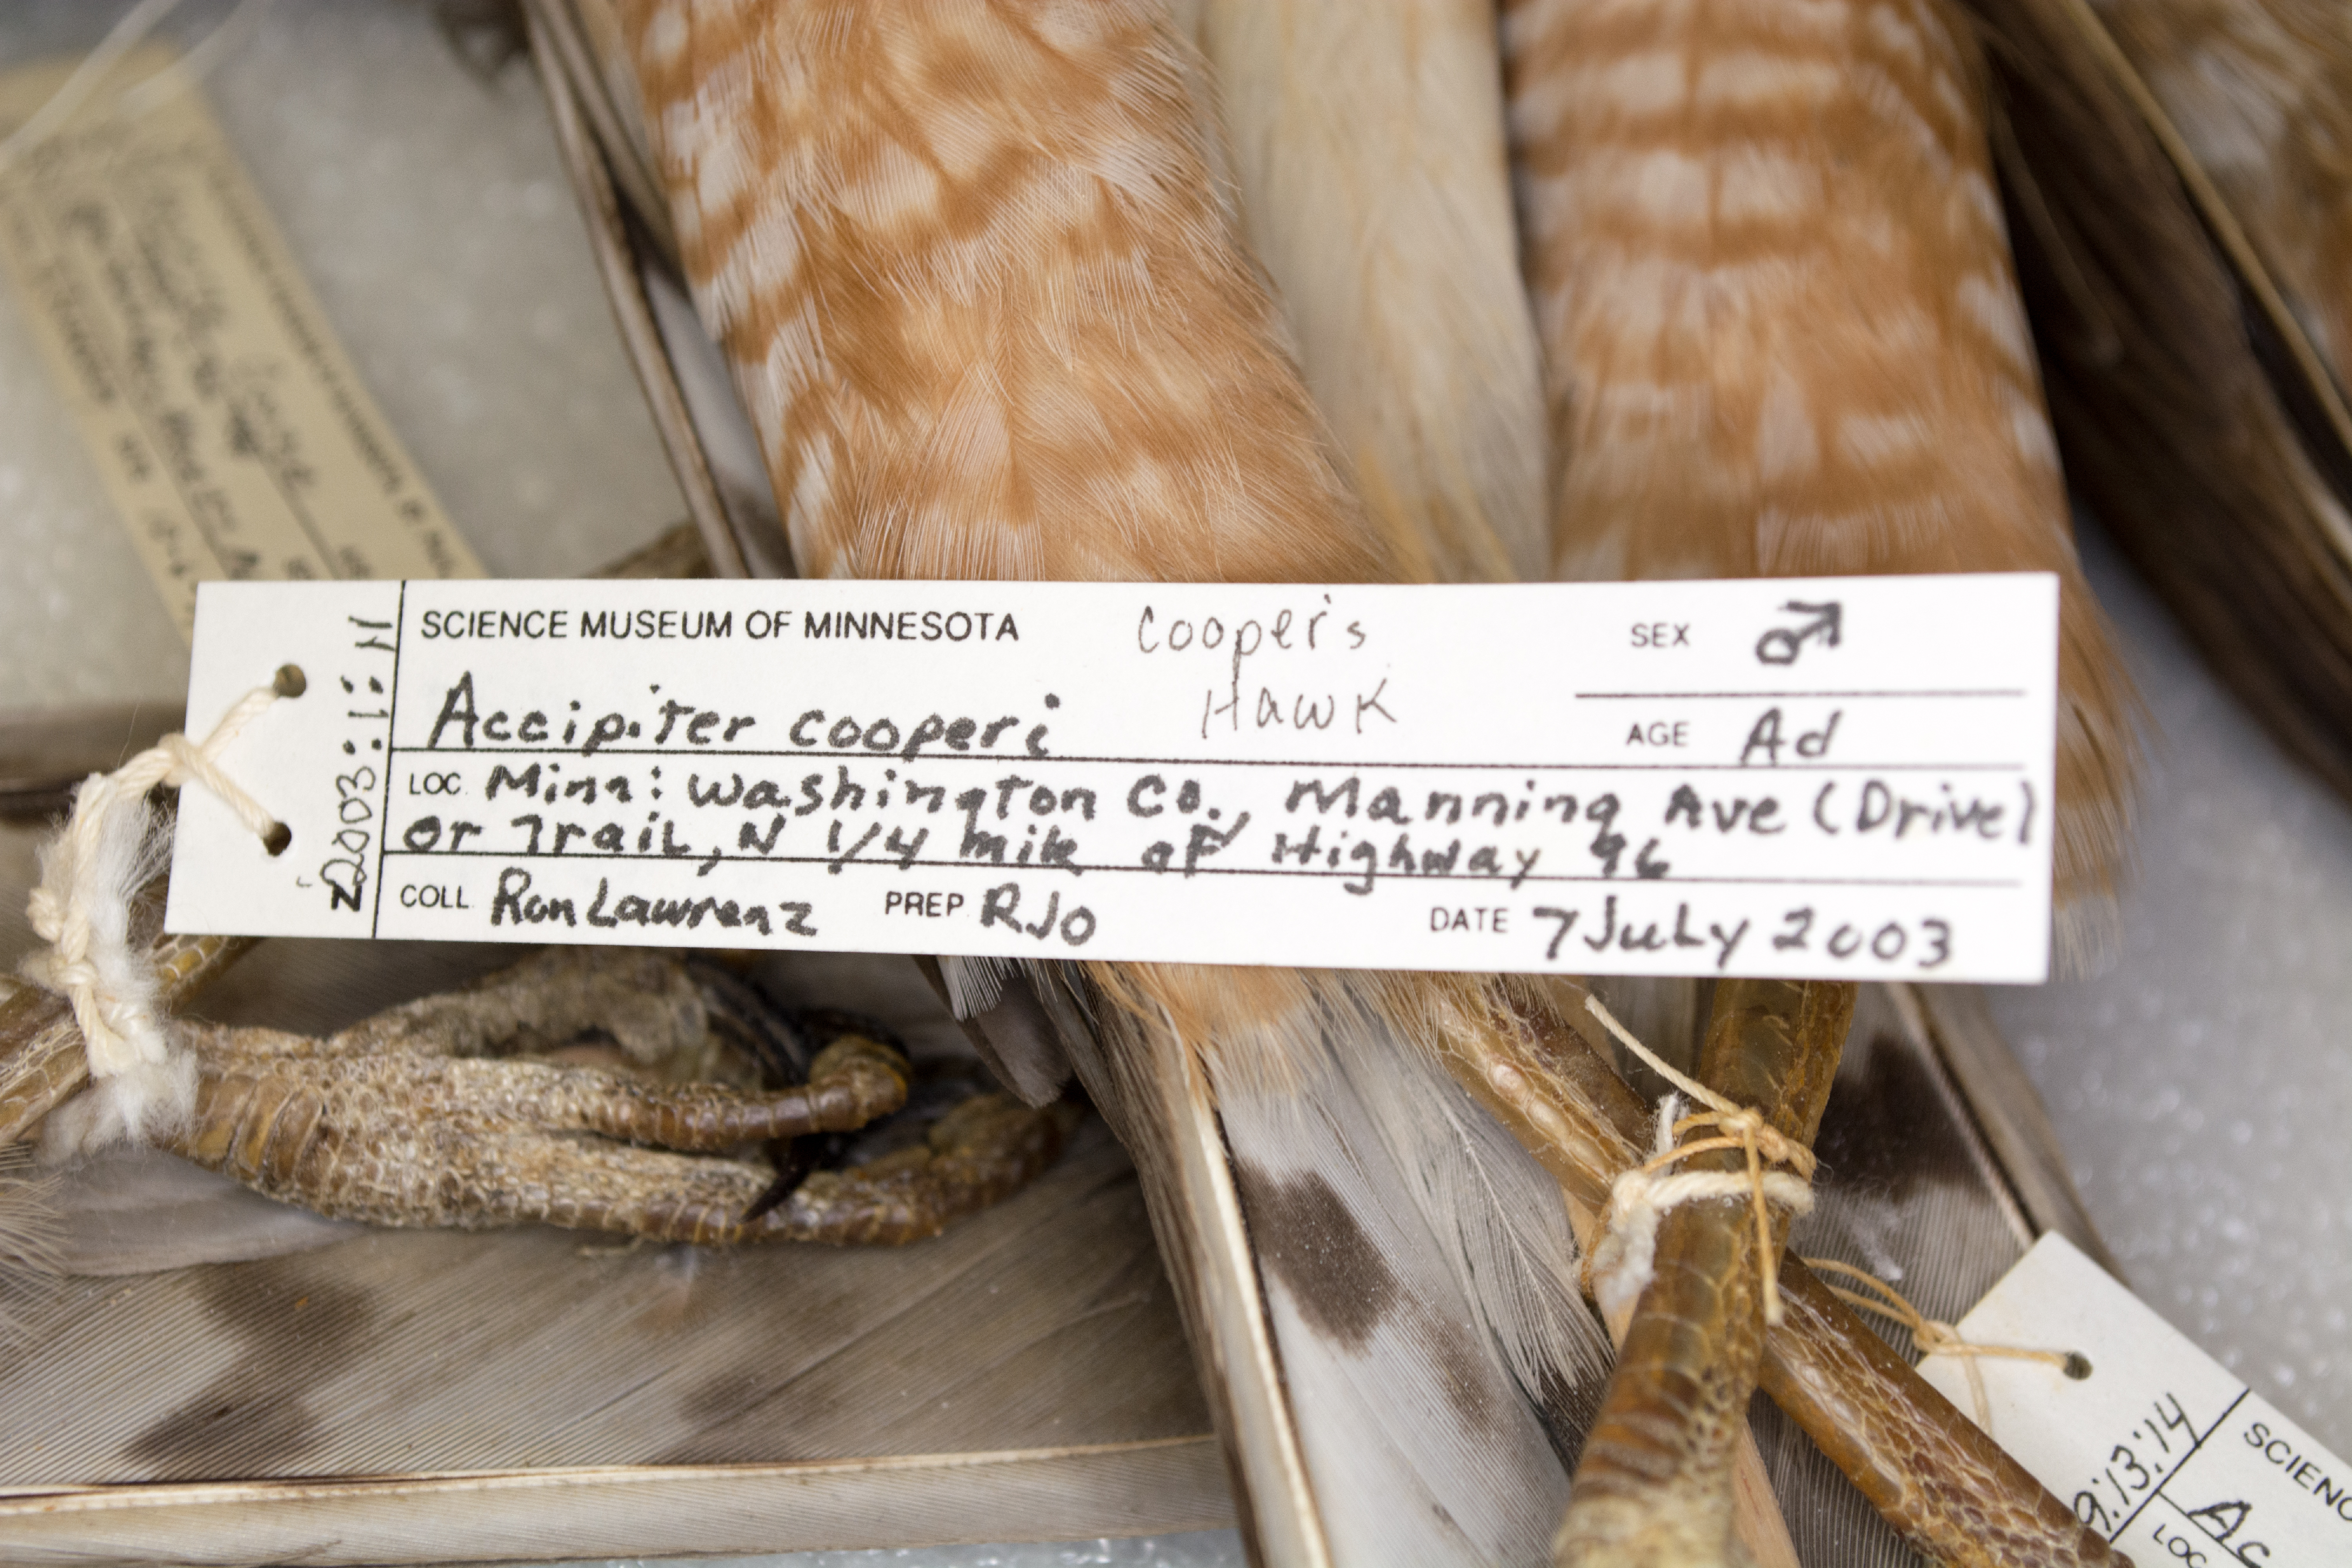 Z2003:1:11
SCIENCE MUSEUM OF MINNESOTA
Cooper's
Hawk
SEX ♂
Accipiter cooperi
AGE Ad
LOC. Minn: Washington Co., Manning Ave (Drive)
or Trail, N 1/4 mile of Highway 96
COLL. Ron Lawrenz PREP. RJO DATE 7 July 2003
9:13:14
SCIENC
Ac
LOC